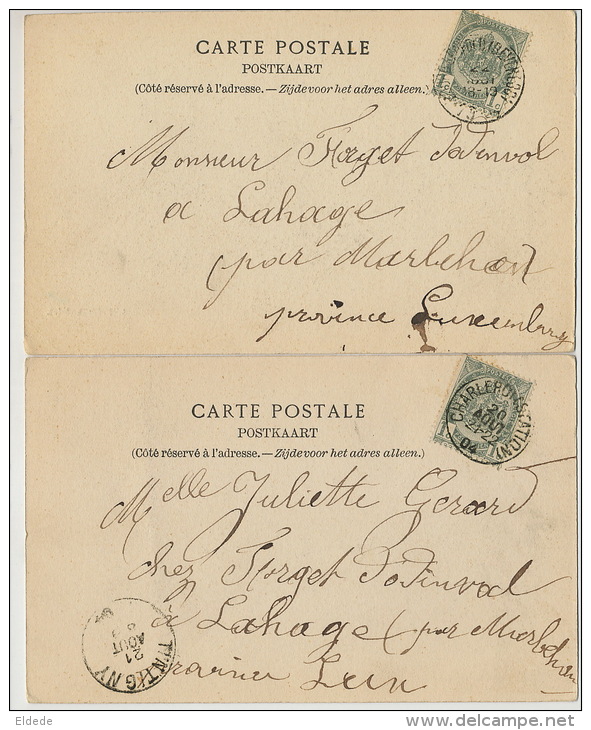 CARTE POSTALE
POSTKAART
(Côté réservé à l'adresse. — Zijde voor het adres alleen.)
Monsieur Forget Potinvol
a Lahage
(par Marbehan
province Luxembury
CARTE POSTALE
POSTKAART
(Côté réservé à l'adresse. — Zijde voor het adres alleen.)
CHARLEROY (STATION)
20
AOUT
21-22
04
Melle Juliette Gerard
chez Forget Potinvol
à Lahage (par Marbehan
province Lux
TINTIGNY
21
AOUT
8
Eldede
delcampe.net